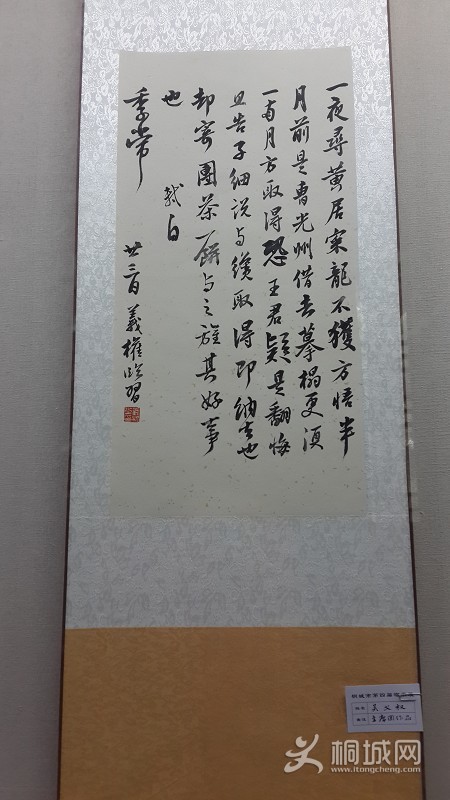 一夜尋黄居寀龍不獲方悟半
月前是曹光州借去摹搨更須
一兩月方取得恐王君疑是翻悔
且告子細説与纔取得即納去也
却寄團茶一餅与之旌其好事
也
軾白
季常
廿三日 義權臨習
姓名 吴义权
桐城网
www.itongcheng.com